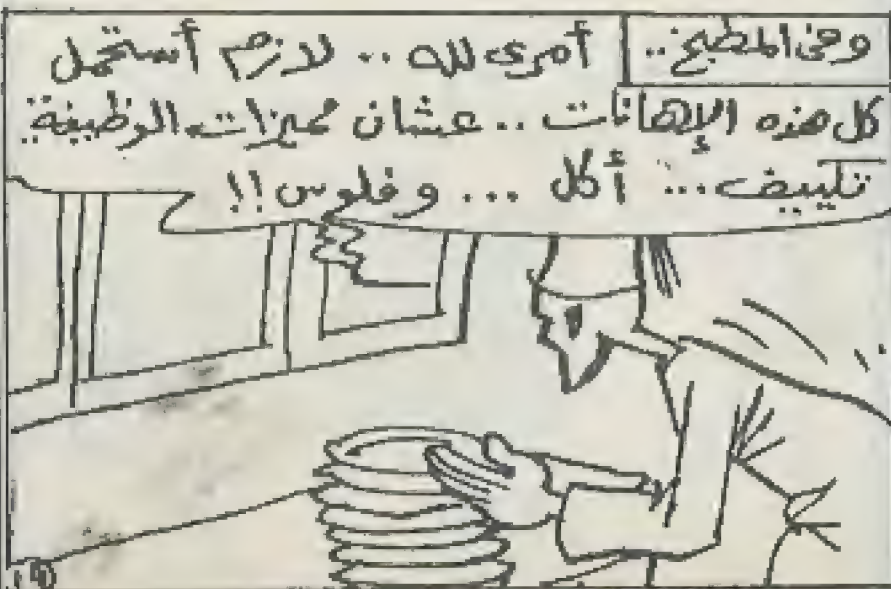 وفى المطبخ..
أمرى لله .. لازم أستحمل
كل هذه الإهانات .. عشان مميزات الوظيفة
تكييف... أكل ... و فلوس !!
١٩